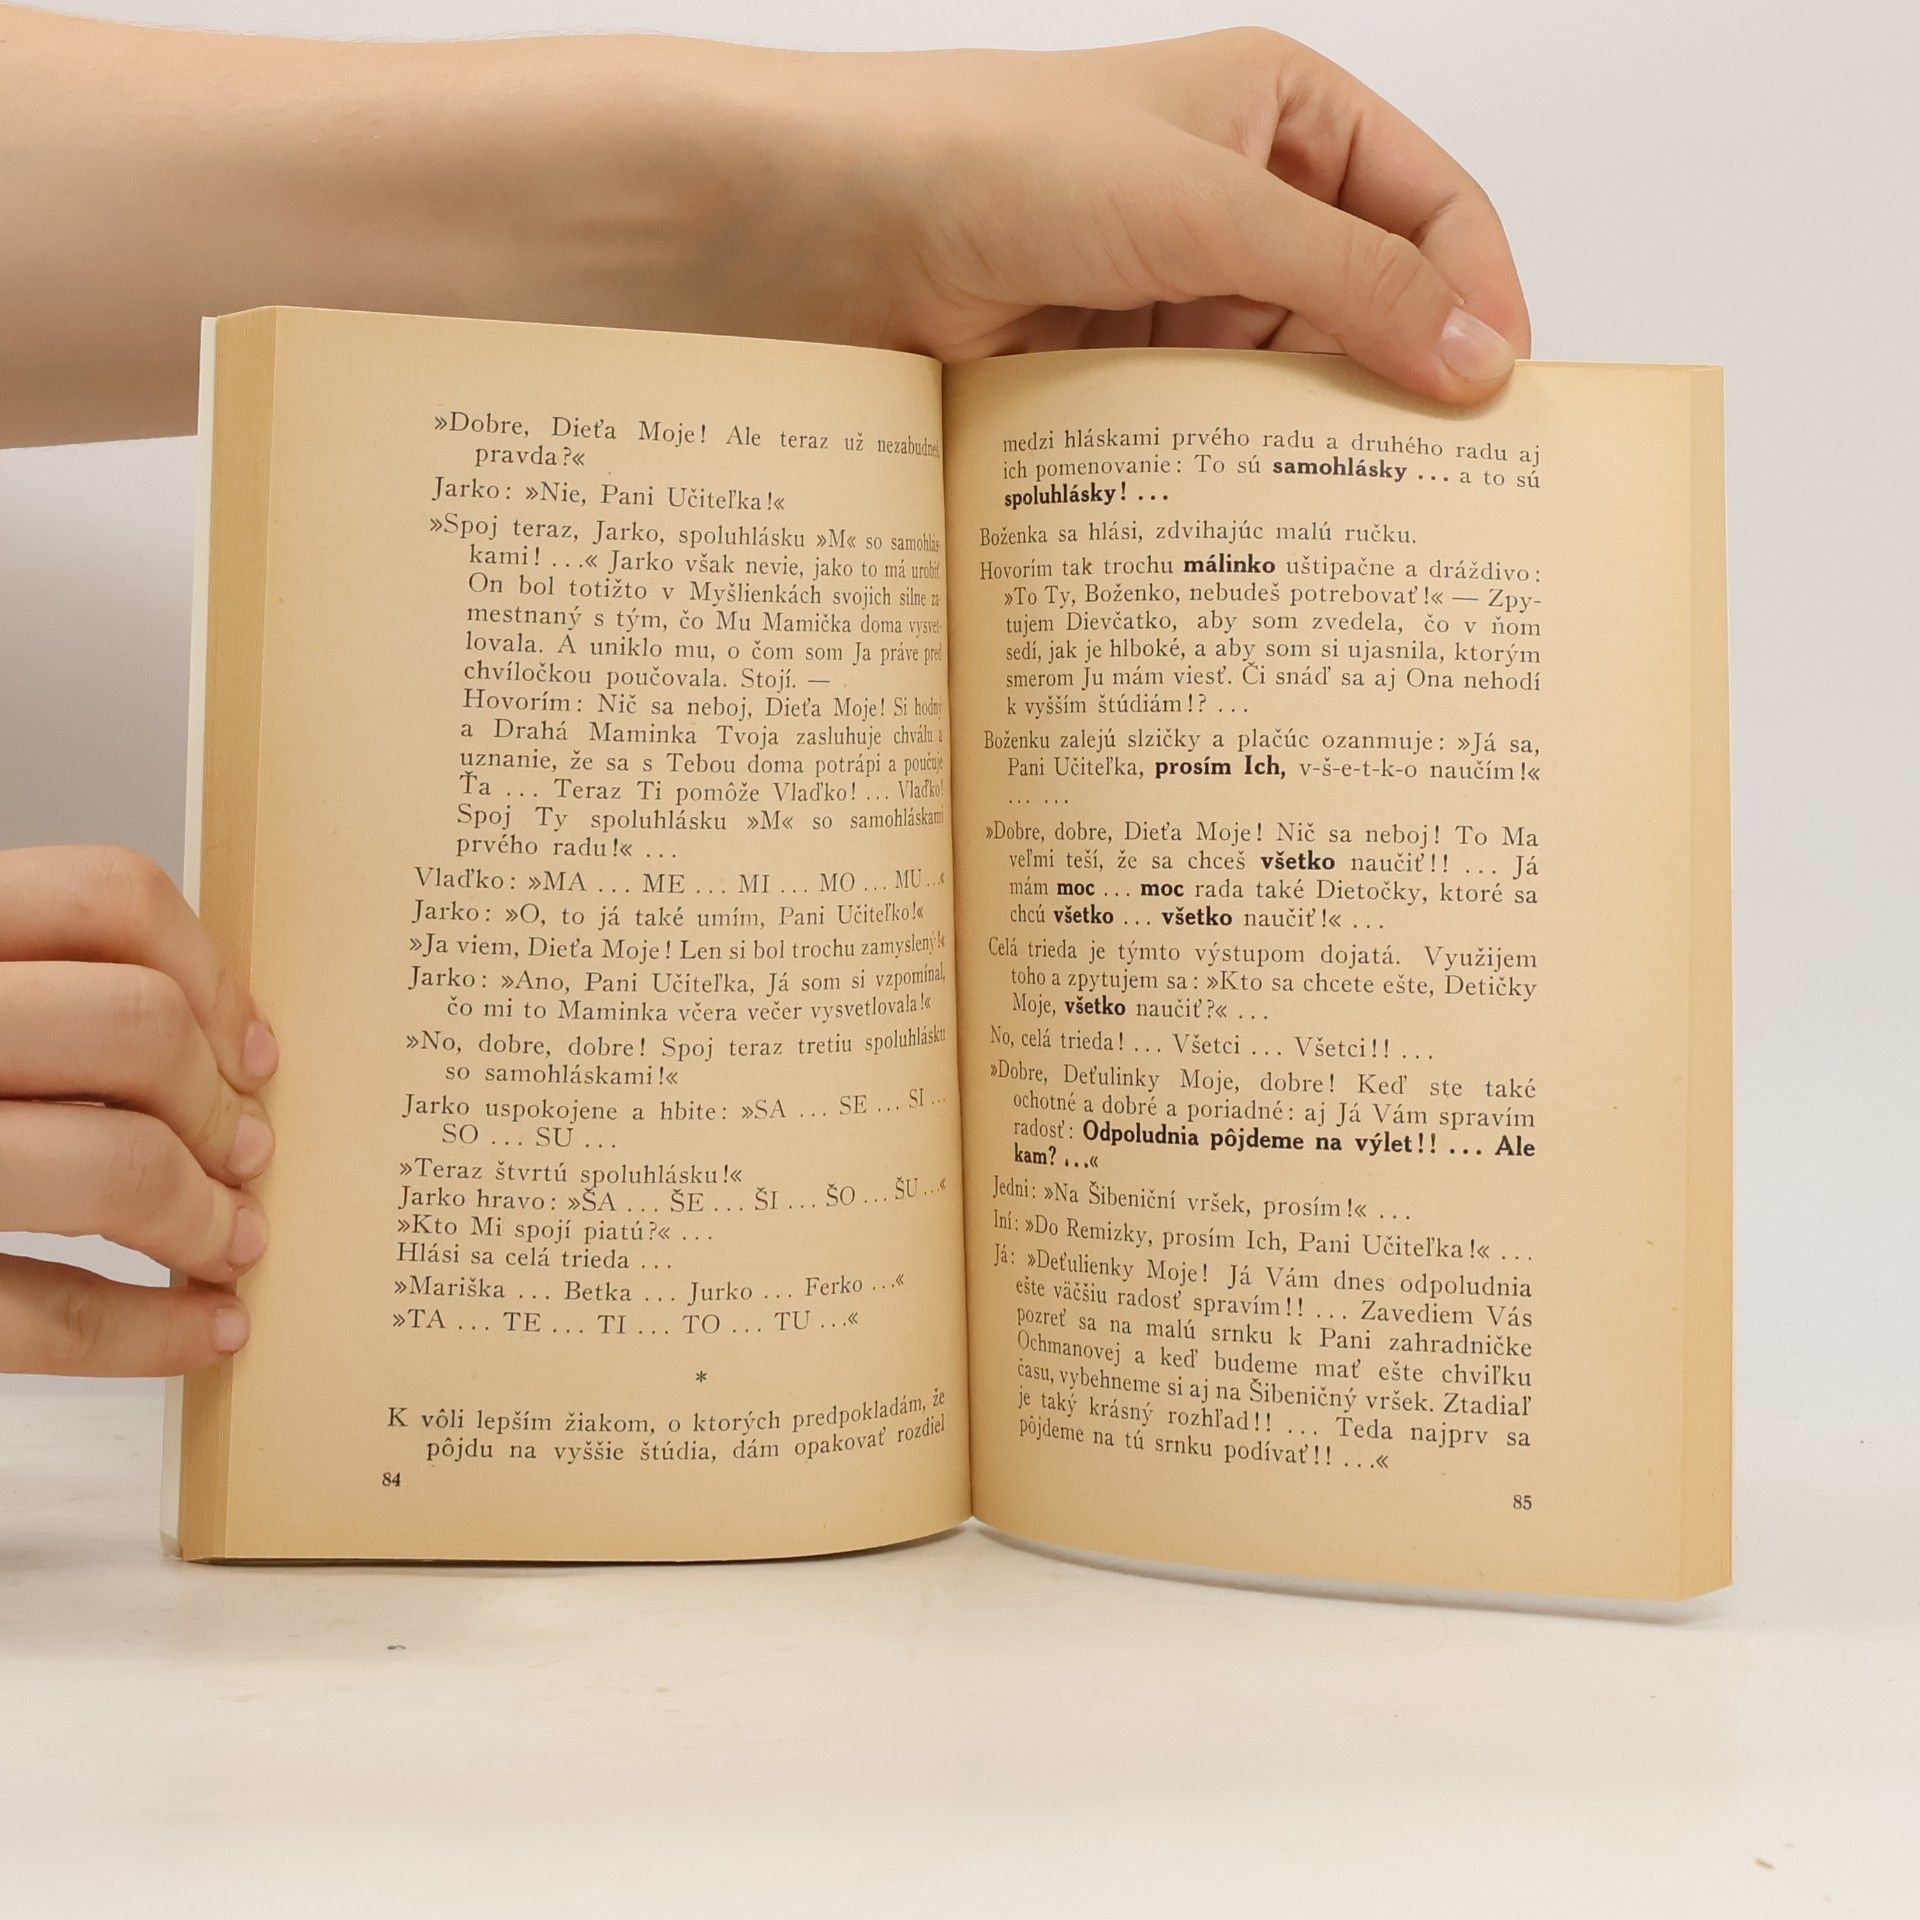 »Dobre, Dieťa Moje! Ale teraz už nezabudneš,
pravda?«
Jarko: »Nie, Pani Učiteľka!«
»Spoj teraz, Jarko, spoluhlásku »M« so samohlás-
kami! ...« Jarko však nevie, jako to má urobiť.
On bol totižto v Myšlienkách svojich silne za-
mestnaný s tým, čo Mu Mamička doma vysvet-
lovala. A uniklo mu, o čom som Ja práve pred
chvíločkou poučovala. Stojí. —
Hovorím: Nič sa neboj, Dieťa Moje! Si hodný
a Drahá Maminka Tvoja zasluhuje chválu a
uznanie, že sa s Tebou doma potrápi a poučuje
Ťa ... Teraz Ti pomôže Vlaďko! ... Vlaďko!
Spoj Ty spoluhlásku »M« so samohláskami
prvého radu!« ...
Vlaďko: »MA ... ME ... MI ... MO ... MU ...«
Jarko: »O, to já také umím, Pani Učiteľko!«
»Ja viem, Dieťa Moje! Len si bol trochu zamyslený!«
Jarko: »Ano, Pani Učiteľka, Já som si vzpomínal,
čo mi to Maminka včera večer vysvetlovala!«
»No, dobre, dobre! Spoj teraz tretiu spoluhlásku
so samohláskami!«
Jarko uspokojene a hbite: »SA ... SE ... SI ...
SO ... SU ...
»Teraz štvrtú spoluhlásku!«
Jarko hravo: »ŠA ... ŠE ... ŠI ... ŠO ... ŠU ...«
»Kto Mi spojí piatú?« ...
Hlási sa celá trieda ...
»Mariška ... Betka ... Jurko ... Ferko ...«
»TA ... TE ... TI ... TO ... TU ...«
*
K vôli lepším žiakom, o ktorých predpokladám, že
pôjdu na vyššie štúdia, dám opakovať rozdiel
84
medzi hláskami prvého radu a druhého radu aj
ich pomenovanie: To sú samohlásky ... a to sú
spoluhlásky! ...
Boženka sa hlási, zdvihajúc malú ručku.
Hovorím tak trochu málinko uštipačne a dráždivo:
»To Ty, Boženko, nebudeš potrebovať!« — Zpy-
tujem Dievčatko, aby som zvedela, čo v ňom
sedí, jak je hlboké, a aby som si ujasnila, ktorým
smerom Ju mám viesť. Či snáď sa aj Ona nehodí
k vyšším štúdiám!? ...
Boženku zalejú slzičky a plačúc ozanmuje: »Já sa,
Pani Učiteľka, prosím Ich, v-š-e-t-k-o naučím!«
... ...
»Dobre, dobre, Dieťa Moje! Nič sa neboj! To Ma
veľmi teší, že sa chceš všetko naučiť!! ... Já
mám moc ... moc rada také Dietočky, ktoré sa
chcú všetko ... všetko naučiť!« ...
Celá trieda je týmto výstupom dojatá. Využijem
toho a zpytujem sa: »Kto sa chcete ešte, Detičky
Moje, všetko naučiť?« ...
No, celá trieda! ... Všetci ... Všetci!! ...
»Dobre, Deťulinky Moje, dobre! Keď ste také
ochotné a dobré a poriadné: aj Já Vám spravím
radosť: Odpoludnia pôjdeme na výlet!! ... Ale
kam? ...«
Jedni: »Na Šibeniční vršek, prosím!« ...
Iní: »Do Remizky, prosím Ich, Pani Učiteľka!« ...
Já: »Deťulienky Moje! Já Vám dnes odpoludnia
ešte väčšiu radosť spravím!! ... Zavediem Vás
pozreť sa na malú srnku k Pani zahradničke
Ochmanovej a keď budeme mať ešte chviľku
času, vybehneme si aj na Šibeničný vršek. Ztadiaľ
je taký krásný rozhľad!! ... Teda najprv sa
pôjdeme na tú srnku podívať!! ...«
85